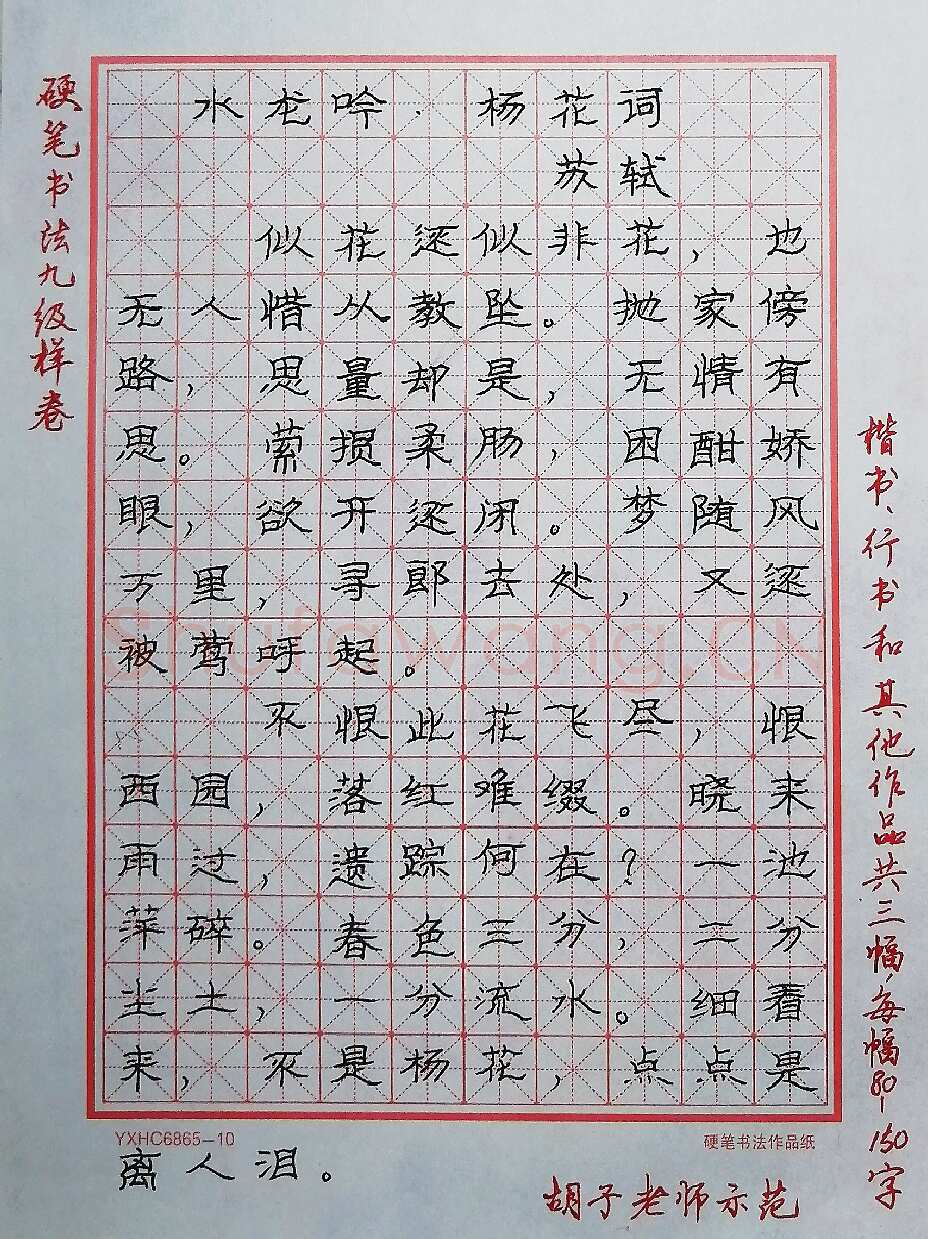 硬笔书法九级样卷
水龙吟·杨花词
苏轼
似花还似非花，也
无人惜从教坠。抛家傍
路，思量却是，无情有
思。萦损柔肠，困酣娇
眼，欲开还闭。梦随风
万里，寻郎去处，又还
被莺呼起。
不恨此花飞尽，恨
西园，落红难缀。晓来
雨过，遗踪何在？一池
萍碎。春色三分，二分
尘土，一分流水。细看
来，不是杨花，点点是
离人泪。
楷书、行书和其他作品共三幅，每幅80-150字
YXHC6865-10
硬笔书法作品纸
胡子老师示范
Shufawang.CN